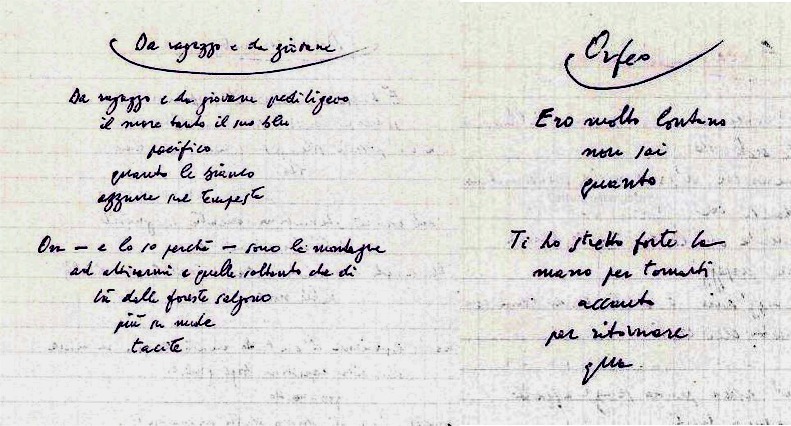 Da ragazzo e da giovane
Da ragazzo e da giovane prediligevo
il mare tanto il suo blu
pacifico
quanto le bianco
azzurre sue tempeste
Ora — e lo so perché — sono le montagne
ad attirarmi e quelle soltanto che di
là dalle foreste salgono
più su nude
tacite
Orfeo
Ero molto lontano
non sai
quanto
Ti ho stretto forte la
mano per tornarti
accanto
per ritornare
qua